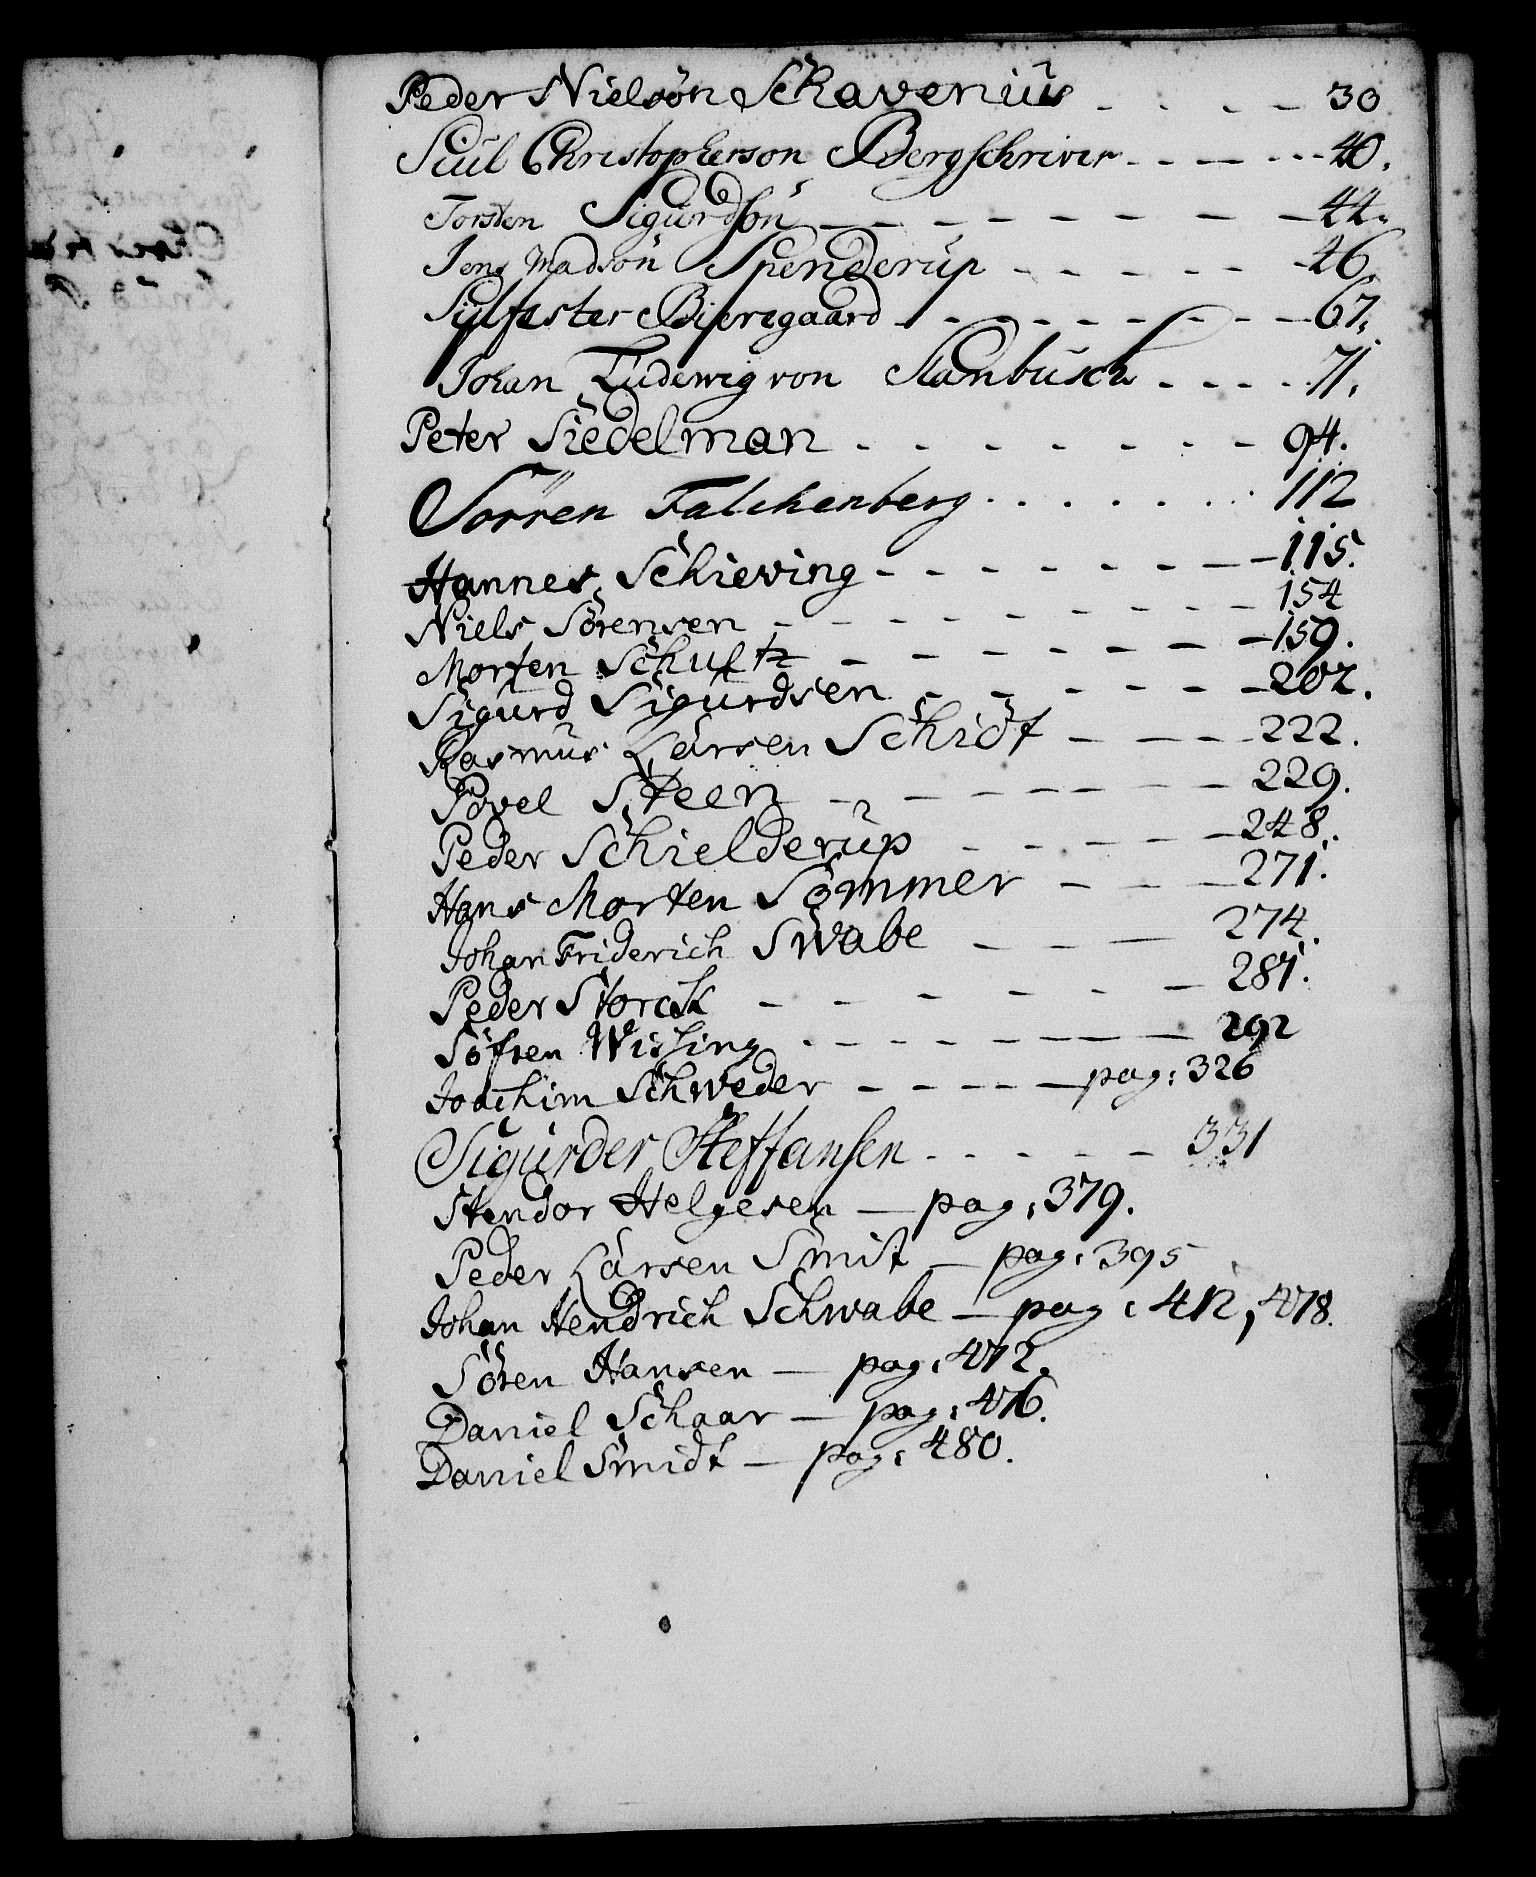 Peder Nielsön Skavenius - - - - 30
Siül Christopherson Bergschriver - - - - - - 40.
Torsten Sigürdsön - - - - - - - - 44.
Jens Madsön Spenderüp - - - - - - 46.
Sÿlfester Bieregaard - - - - - - - - 67.
Johan Ludewig von Stanbüsch - - - - 71.
Peter Siedelman - - - - - - - - 94.
Sörren Falchenberg . . . . . . . 112
Hannes Schieving - - - - - - - - 115.
Niels Sörensen - - - - - - - 154
Morten Schultz - - - - - - - 159.
Sigurd Sigurdsen - - - - - - 202.
Rasmüs Larsen Schidt - - - - 222.
Povel Steen - - - - - - - 229.
Peder Schielderüp - - - - - 248.
Hans Morten Sommer - - - 271.
Johan Friderich Swabe - - - 274.
Peder Storck - - - - - - 287.
Söfren Wissing - - - - - - - 292
Joachim Schweder - - - - - pag: 326
Sigürder Steffansen - - - - - 331
Stendor Helgesen — pag: 379.
Peder Larsen Smit — pag: 395
Johan Hendrich Schwabe — pag: 412, 478.
Sören Hansen — pag: 472.
Daniel Schaar — pag: 476.
Daniel Smidt — pag: 480.